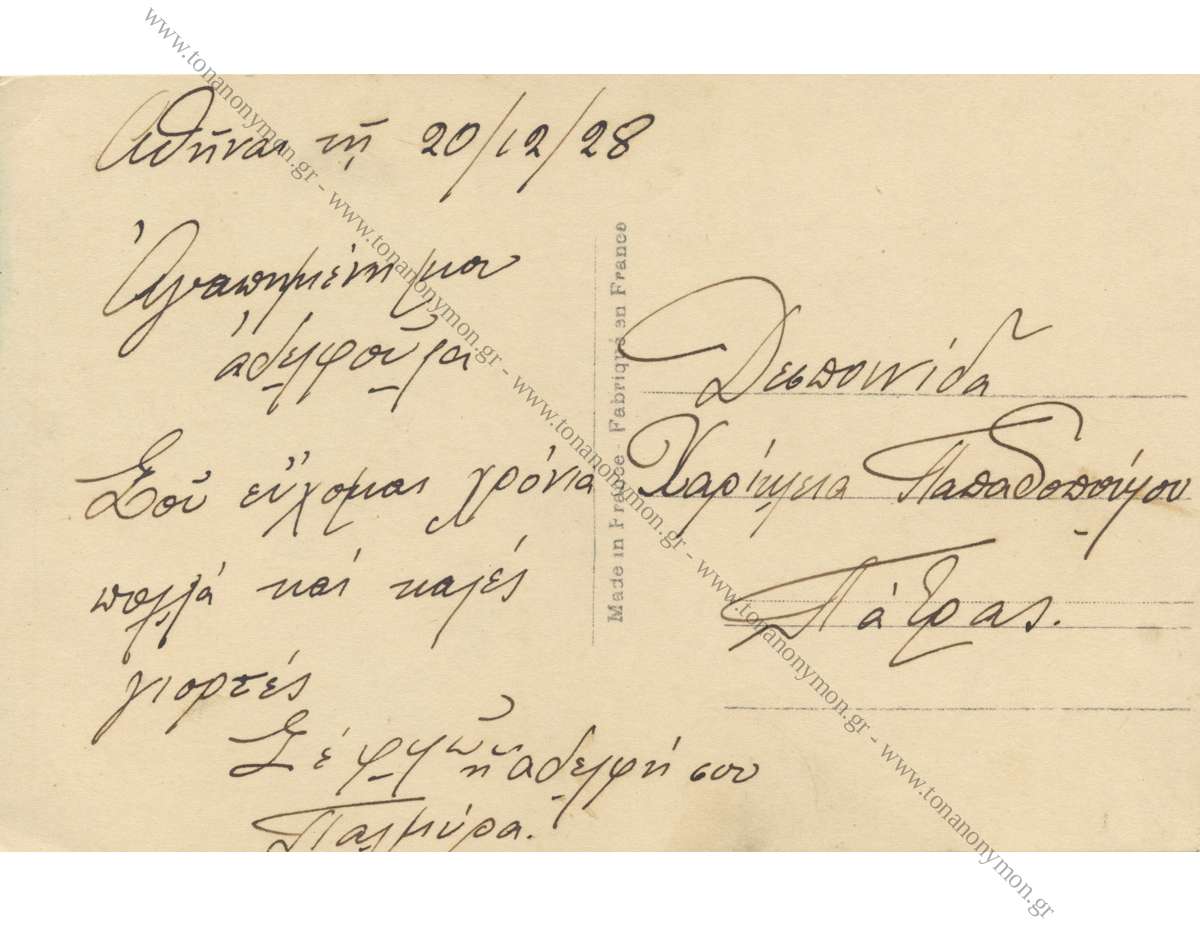 Ἀθῆναι τῇ 20/12/28
Ἀγαπημένη μου
ἀδελφούλα
Σοῦ εὔχομαι χρόνια
πολλά καί καλές
γιορτές
Σέ φιλῶ ἡ ἀδελφή σου
Παλμύρα.
Made in France - Fabriqué en France
Δεσποινίδα
Χαρίκλεια Παπαδοπούλου
Πάτρας.
www.tonanonymon.gr - www.tonanonymon.gr - www.tonanonymon.gr - www.tonanonymon.gr - www.tonanonymon.gr